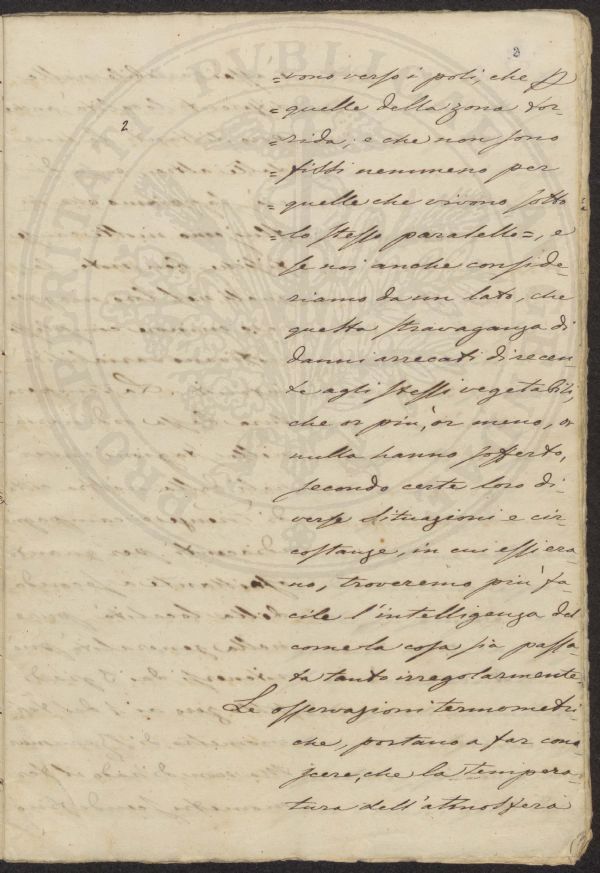 3
2
=vono verso i poli, che p
=quelle della zona tor=
=rida, e che non sono
=fissi nemmeno per
=quelle che vivono sotto
=lo stesso paralello=, e
se noi anche conside-
riamo da un lato, che
questa stravaganza di
danni arrecati di recen-
te agli stessi vegetabili,
che or più, or meno, or
nulla hanno sofferto,
secondo certe loro di-
verse situazioni e cir-
costanze, in cui essi era-
no, troveremo più fa-
cile l'intelligenza del
come la cosa sia passa
ta tanto irregolarmente.
Le osservazioni termometri-
che, portano a far cono-
scere, che la tempera-
tura dell'atmosfera
PROSPERITATI PUBLICAE